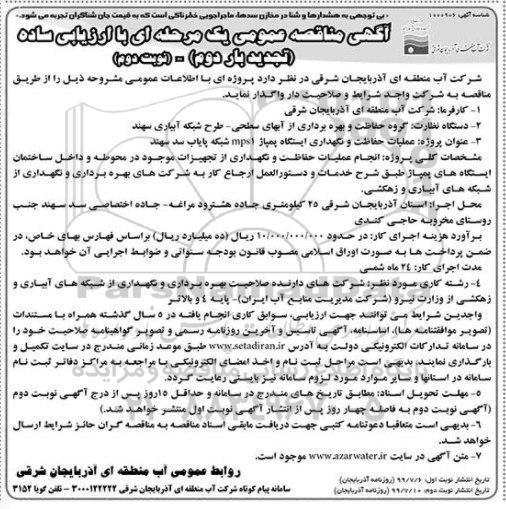 شناسه آگهی: ۱۰۰۰۹۰۶
- بی توجهی به هشدارها و شنا در مخازن سدها، ماجراجویی خطرناکی است که به قیمت جان شناگران تمام می شود.
آگهی مناقصه عمومی یک مرحله ای با ارزیابی ساده
(تجدید بار دوم) - (نوبت دوم)
شرکت آب منطقه ای آذربایجان شرقی در نظر دارد پروژه ای با اطلاعات عمومی مشروحه ذیل را از طریق
مناقصه به شرکت واجد شرایط و صلاحیت دار واگذار نماید.
۱- کارفرما: شرکت آب منطقه ای آذربایجان شرقی
۲- دستگاه نظارت: گروه حفاظت و بهره برداری از آبهای سطحی- طرح شبکه آبیاری سهند
۳- عنوان پروژه: عملیات حفاظت و نگهداری ایستگاه پمپاژ mps۱ شبکه پایاب سد سهند
مشخصات کلی پروژه: انجام عملیات حفاظت و نگهداری از تجهیزات موجود در محوطه و داخل ساختمان
ایستگاه های پمپاژ طبق شرح خدمات و دستورالعمل ارجاع کار به شرکت های بهره برداری و نگهداری از
شبکه های آبیاری و زهکشی.
محل اجرا: استان آذربایجان شرقی ۲۵ کیلومتری جاده هشترود مراغه- جاده اختصاصی سد سهند جنب
روستای مخروبه حاجی کندی
برآورد هزینه اجرای کار: در حدود ۱۰/۰۰۰/۰۰۰/۰۰۰ ریال (ده میلیارد ریال) براساس فهارس بهای خاص، در
ضمن پرداخت ها به صورت اوراق اسلامی مصوب قانون بودجه سنواتی و ضوابط اجرایی آن خواهد بود.
مدت اجرای کار: ۲۴ ماه شمسی
۴- رشته کاری مورد نظر: شرکت های دارنده صلاحیت بهره برداری و نگهداری از شبکه های آبیاری و
زهکشی از وزارت نیرو (شرکت مدیریت منابع آب ایران)- پایه ۴ و بالاتر
واجدین شرایط می توانند جهت ارزیابی، سوابق کاری انجام یافته در ۵ سال گذشته همراه با مستندات
(تصویر موافقتنامه ها)، اساسنامه، آگهی تاسیس و آخرین روزنامه رسمی و تصویر گواهینامه صلاحیت خود را
در سامانه تدارکات الکترونیکی دولت به آدرس www.setadiran.ir طبق موعد زمانی مندرج در سایت تکمیل و
بارگذاری نمایند. بدیهی است مراحل ثبت نام و اخذ امضای الکترونیکی با مراجعه به مراکز دفاتر ثبت نام
سامانه در استانها و سایر موارد مورد لزوم سامانه نیز بایستی رعایت گردد.
۵- مهلت تحویل اسناد: مطابق تاریخ های مندرج در سامانه و حداقل ۱۵روز پس از درج آگهی نوبت دوم
(آگهی نوبت دوم به فاصله چهار روز پس از انتشار آگهی نوبت اول منتشر خواهد شد.)
۶- بدیهی است متعاقبا دعوتنامه کتبی جهت دریافت مابقی اسناد مناقصه به مناقصه گران حائز شرایط ارسال
خواهد شد.
۷- متن آگهی در سایت www.azarwater.ir موجود است.
روابط عمومی آب منطقه ای آذربایجان شرقی
تاریخ انتشار نوبت اول: ۹۹/۷/۶ (روزنامه آذربایجان)
تاریخ انتشار نوبت دوم: ۹۹/۷/۱۰ (روزنامه آذربایجان)
سامانه پیام کوتاه شرکت آب منطقه ای آذربایجان شرقی ۳۰۰۰۱۲۲۲۲۲ - تلفن گویا ۳۱۵۲